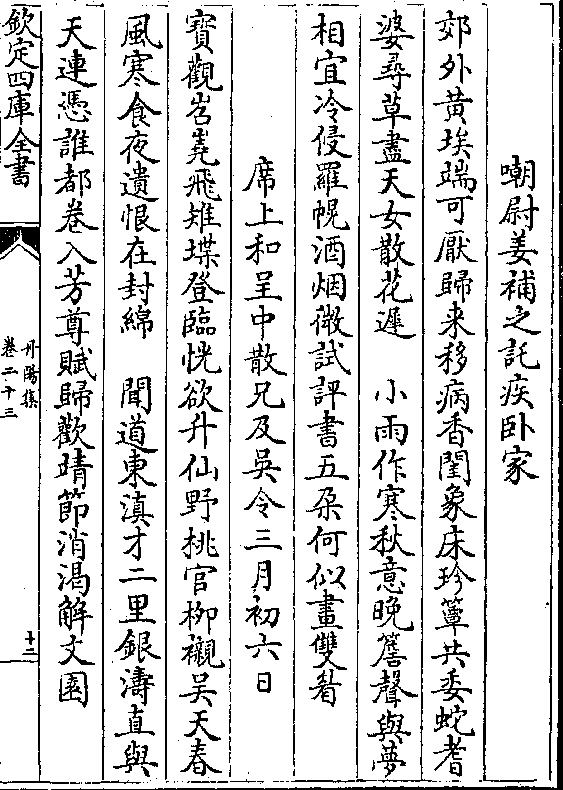 嘲尉姜補之託疾卧家
郊外黄埃端可厭歸来移病香閨象床珍簟共委蛇耆
婆尋草盡天女散花遲　小雨作寒秋意晚簷聲與夢
相宜冷侵羅幌酒烟微試評書五朶何似畫雙眉
席上和呈中散兄及吳令三月初六日
寳觀岧嶤飛雉堞登臨恍欲升仙野桃官栁襯吴天春
風寒食夜遺恨在封綿　聞道東滇才二里銀濤直與
天連憑誰都卷入芳尊賦歸歡靖節消渴解文園
欽定四庫全書
丹陽集
卷二十三
十二